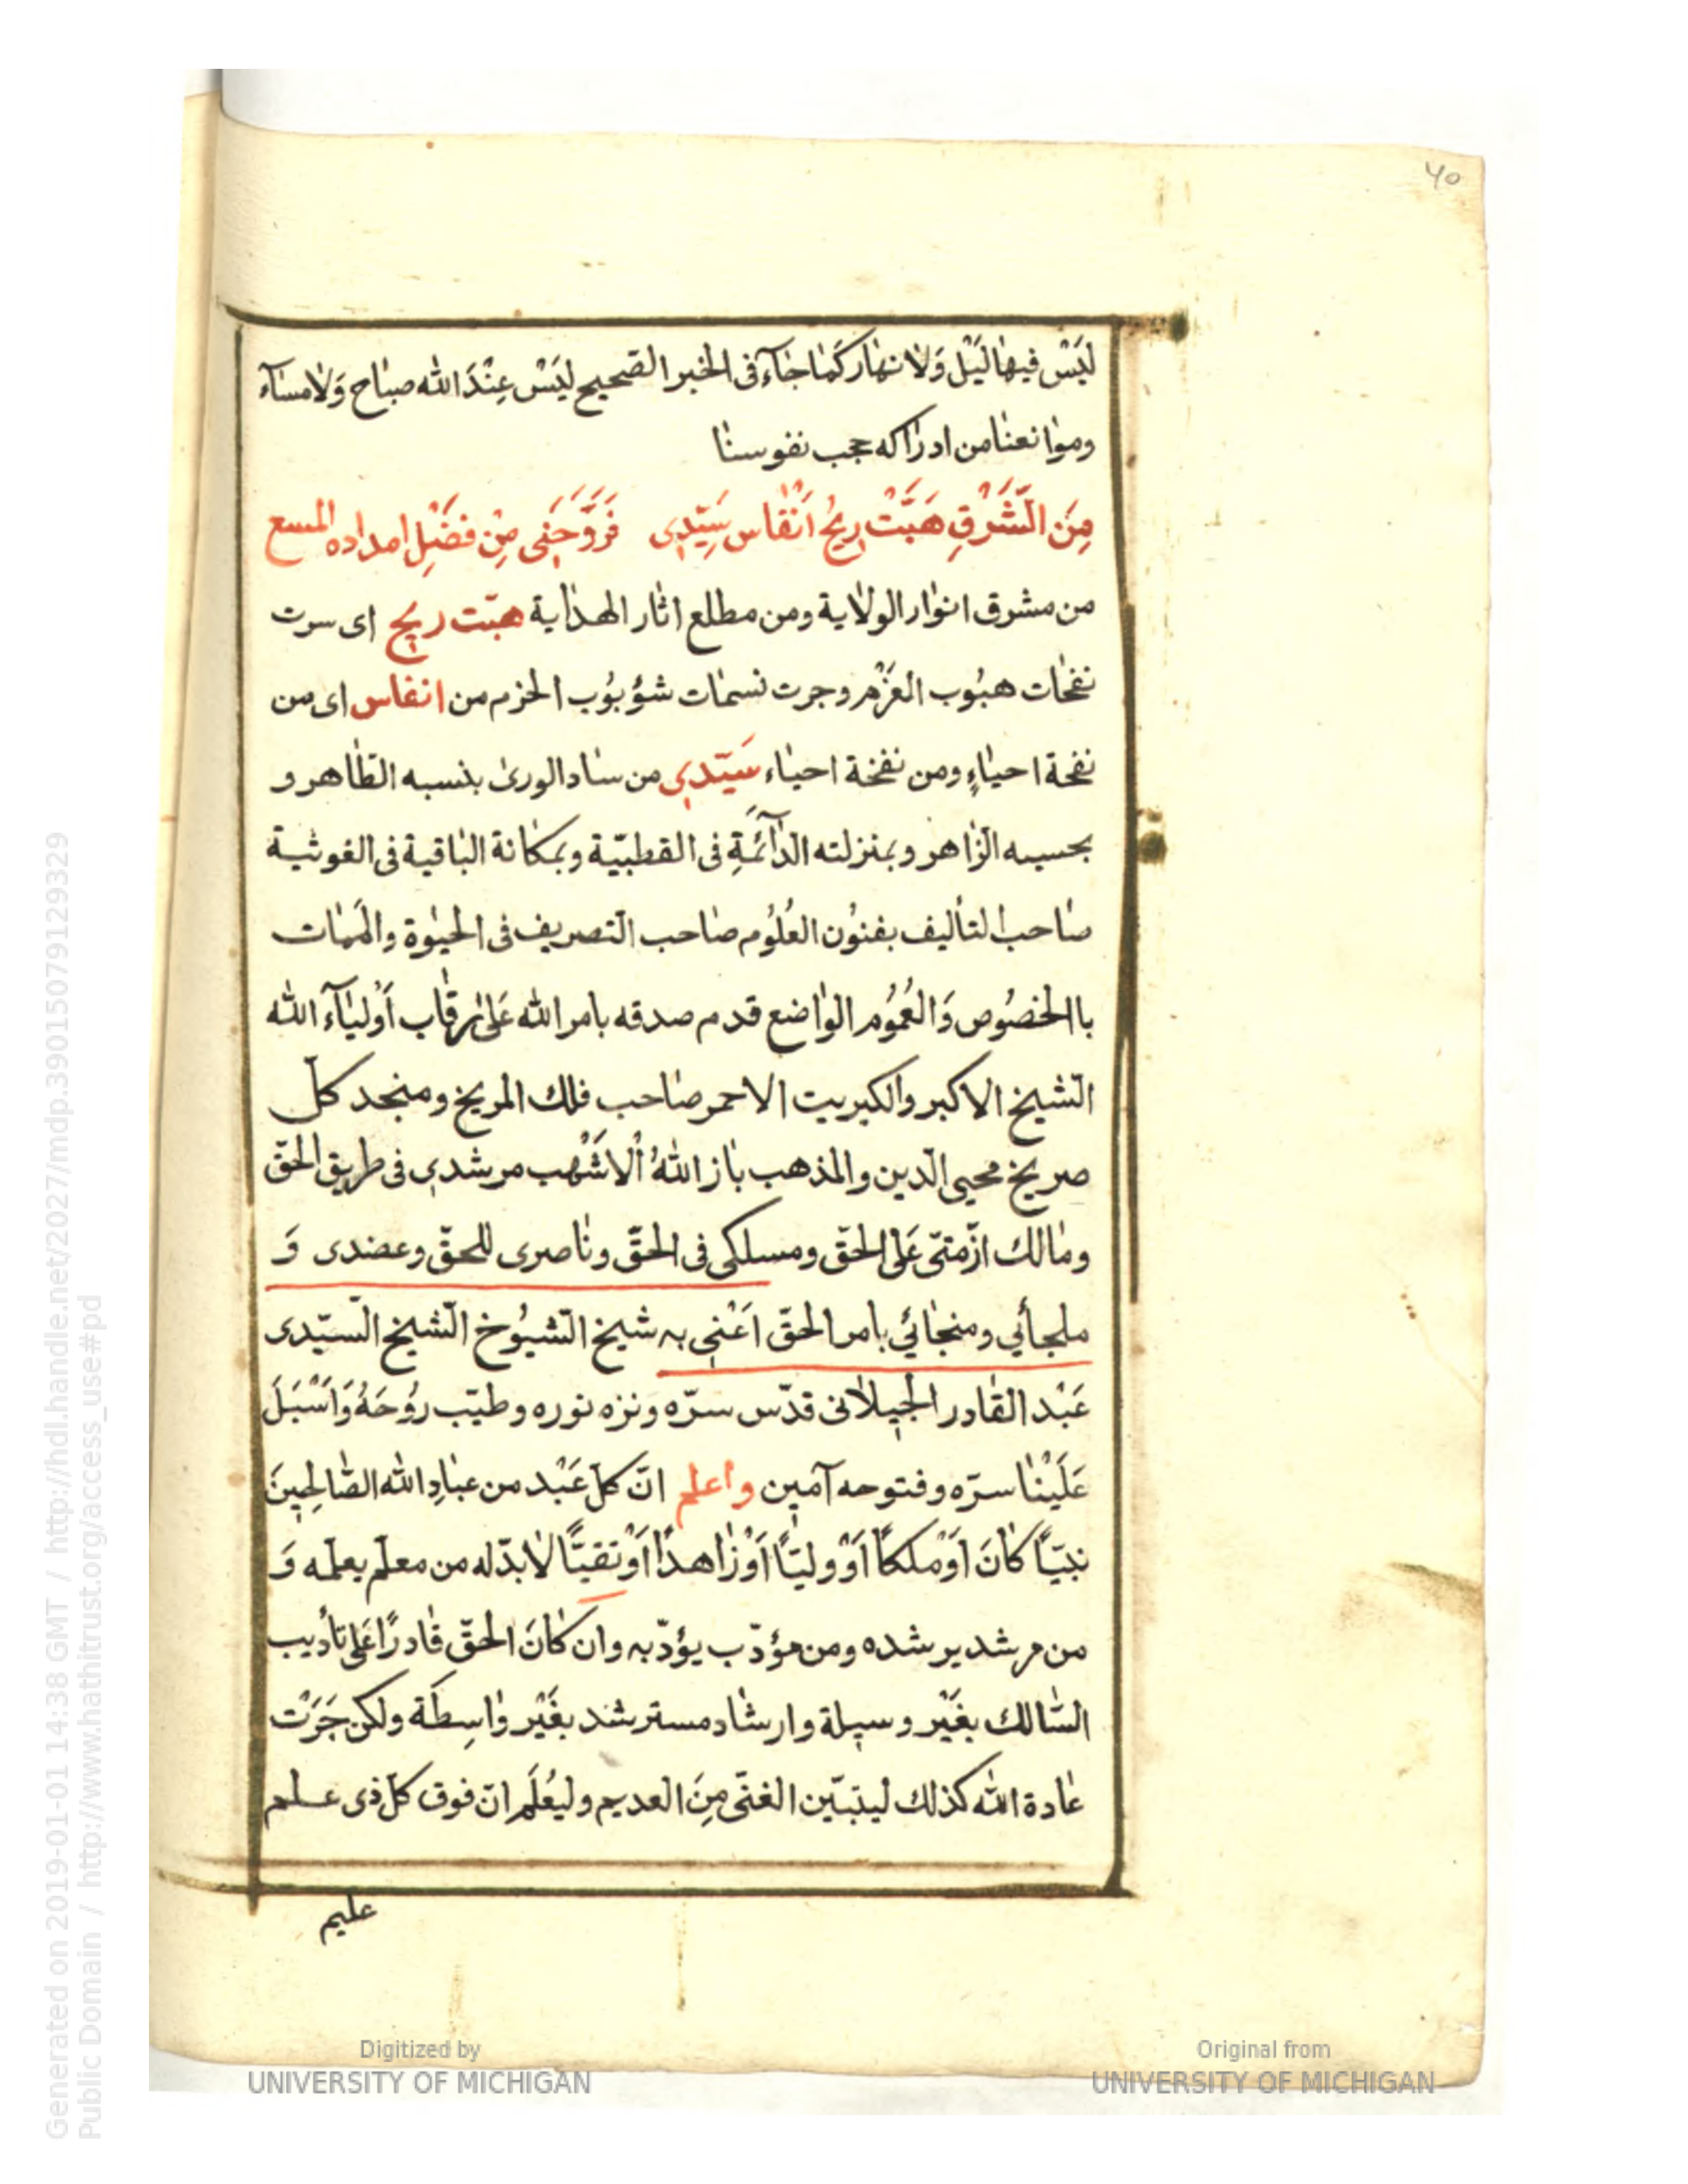 ٤٥
لَيْسَ فيهٰا لَيْل وَلٰا نهٰار كَمٰا جٰاۤءَ فى الخبر الصّحيح لَيْسَ عِنْدَ الله صبٰاح وَلٰا مسٰاۤء
وموٰانعنٰا من ادرٰاكه حجب نفوسنٰا
مِنَ الشَّرْقِ هَبَّتْ رِيحُ اَنْفٰاس سَيِّدِى فَرَوَّحَنِى مِنْ فَضْلِ امداده المسع
من مشرق انوٰار الولٰاية ومن مطلع اثٰار الهدٰاية هبّت ريح اى سرت
نفحٰات هبُوب العَزْم وجرت نسمٰات شؤبُوب الحزم من انفاس اى من
نفحة احيٰاءٍ ومن نفخة احيٰاء سَيّدى من سٰاد الورىٰ بنسبه الطّٰاهر و
بحسبه الزّٰاهر وبمنزلته الدّٰاۤئمَةِ فى القطبيّة وبمكٰانة البٰاقية فى الغوثية
صٰاحب التأليف بفنُون العُلُوم صٰاحب التصريف فى الحيٰوة والمَمٰات
باالخصُوص وَالعُمُوم الوٰاضع قدم صدقه بامر الله عَلىٰ رقٰاب اَوْليٰاۤءَ الله
الشّيخ الاكبر والكبريت الاحمر صٰاحب فلك المريخ ومنجد كلّ
صريخ محيى الدّين والمذهب بٰاز اللهُ اْلاَشْهب مرشدى فى طريق الحقّ
ومٰالك ازّمتىّ عَلى الحقّ ومسلكى فى الحقّ ونٰاصرى للحقّ وعضدى وَ
ملجأئي ومنجٰائي بامر الحقّ اَعْنِى به شيخ الشّيُوخ الشّيخ السيّدى
عَبْد القٰادر الجيلٰانى قدّس سرّه ونزه نوره وطيّب رُوُحَهُ وَاَسْبَلَ
عَلَيْنٰا سرّه وفتوحه آمين واعلم انّ كلّ عَبْد من عبٰادِ الله الصّٰالِحِينَ
نبيّاً كٰانَ اَوْملكاً اَوْوليّاً اَوْزٰاهداً اَوْتقيّاً لٰا بدّ له من معلّم يعلّمه وَ
من مرشد يرشده ومن مؤدّب يؤدّبه وان كٰانَ الحقّ قٰادرًا عَلى تأديب
السّٰالك بغَيْر وسيلة وارشٰاد مسترشد بغَيْر وٰاسِطَة ولكن جَرَتْ
عٰادة الله كذلك ليتبيّن الغنّى مِنَ العديم وليُعْلَم انّ فوق كلّ ذى علم
عليم
Digitized by
UNIVERSITY OF MICHIGAN
Original from
UNIVERSITY OF MICHIGAN
Generated on 2019-01-01 14:38 GMT / http://hdl.handle.net/2027/mdp.39015079129329
Public Domain / http://www.hathitrust.org/access_use#pd